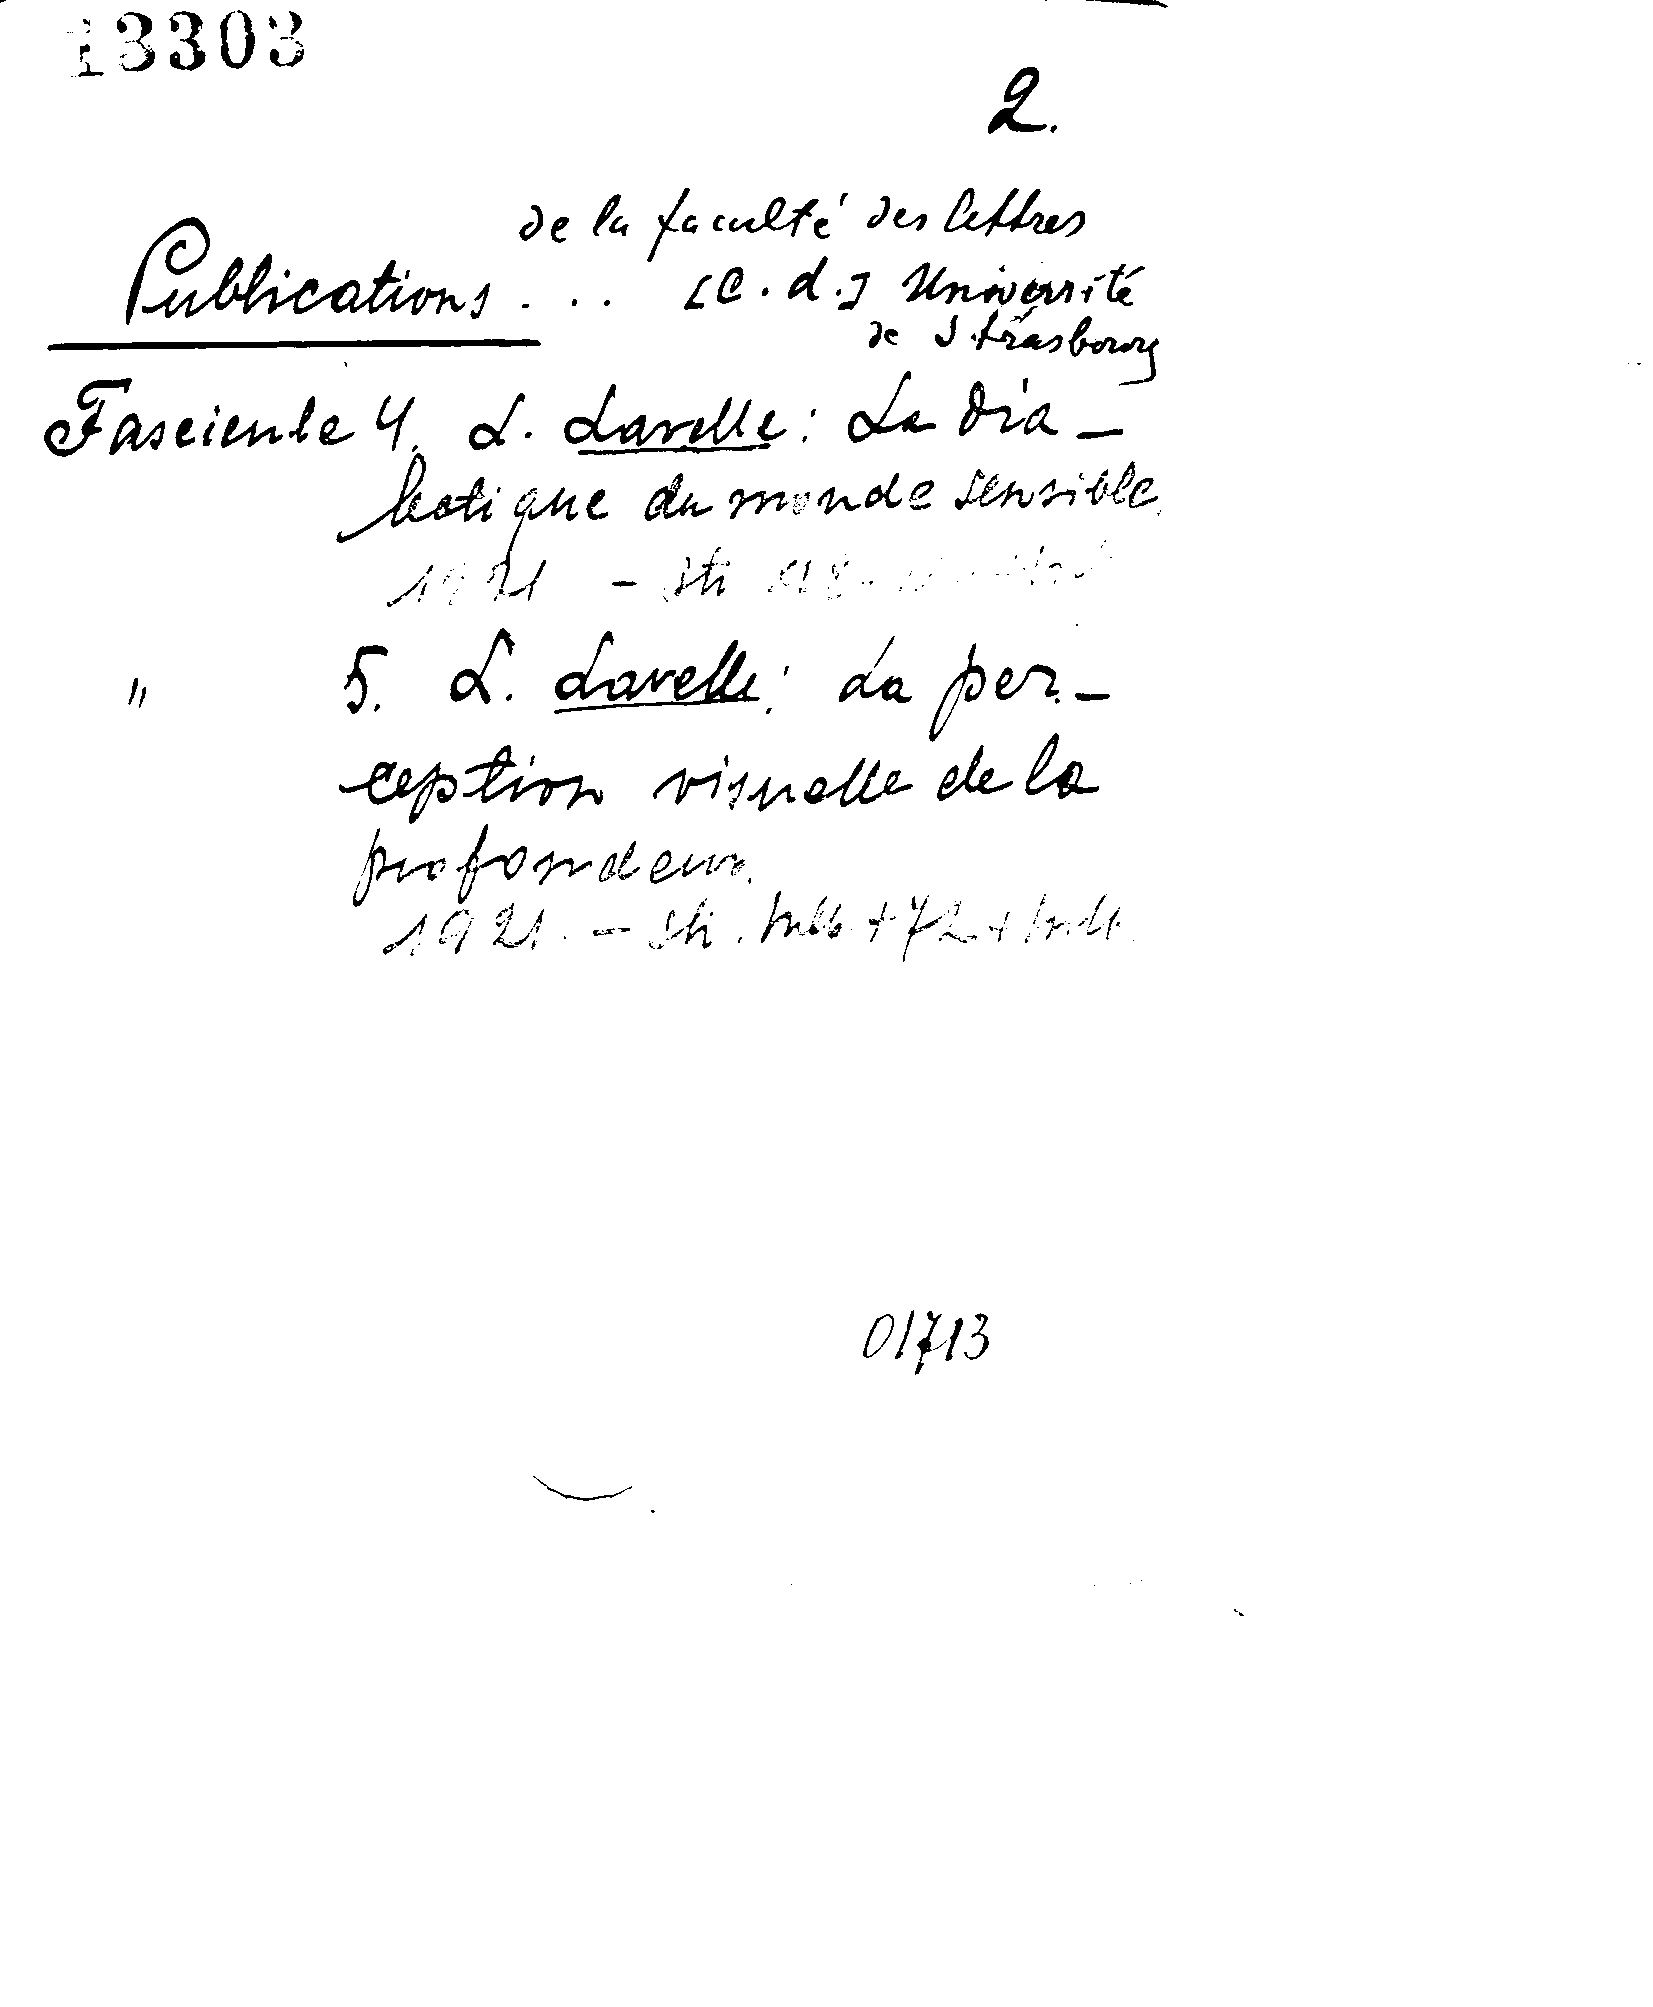 13303
2.
de la faculté des lettres
Publications ... [C.d.] Université
de Strasbourg
Fascicule 4. L. Lavelle: La dia-
lectique du monde sensible.
1921 -
" 5. L. Lavelle: La per-
ception visuelle de la
profondeur.
1921. - + 72 +
01713